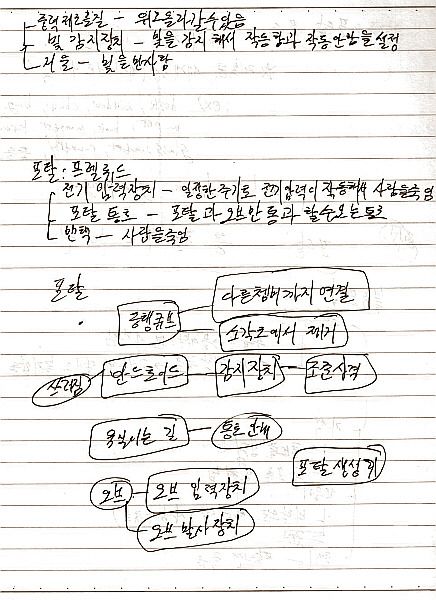 중력 제로길 - 위로 올라갈 수 있음
빛 감지장치 - 빛을 감지해서 작동함과 작동안함을 설정
거울 - 빛을 반사함
포탈 : 프렐루드
전기 압력장치 - 일정한 주기로 전기압력이 작동해서 사람을 죽임
포탈 통로 - 포탈과 오브만 통과 할수있는 통로
- 사람을 죽임
포탈
동행큐브
다른챔버까지 연결
소각로에서 제거
안드로이드
감지장치
조준사격
길
통로
포탈 생성기
오브
오브 입력장치
오브 발사장치